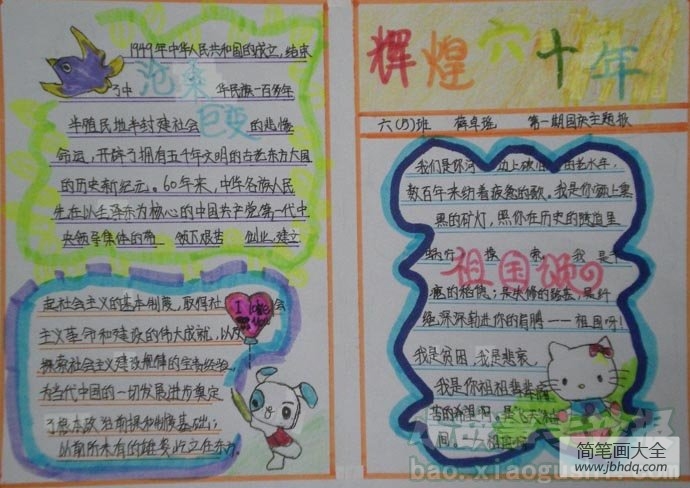 1949年中华人民共和国的成立,结束
了中 华民族一百多年
沧桑
巨变
半殖民地半封建社会 的悲惨
命运,开辟了拥有五千年文明的古老东方大国
的历史新纪元。60年来,中华各族人民
先在以毛泽东为核心的中国共产党第一代中
央领导集体的带 领下艰苦 创业,建立
起社会主义的基本制度,取得社 会
主义革命和建设的伟大成就,以及
探索社会主义建设规律的宝贵经验
为当代中国的一切发展进步奠定
了根本政治前提和制度基础;
以前所未有的雄姿屹立在东方。
I love
you
辉煌六十年
六(5)班 薛卓瑶 第一期国庆主题报
我们是你河 边上破旧 的老水车,
数百年来纺着疲惫的歌。我是你额上熏
黑的矿灯,照你在历史的隧道里
蜗行 摸 索。 我 是干
祖国颂
瘪的稻穗;是失修的路基,是纤
绳深深勒进你的肩膊——祖国呀!
我是贫困,我是悲哀,
我是你祖祖辈辈痛
苦的希望啊,是飞天袖
间
简笔画大全
www.jbhdq.com
bao.xiaogushi.com